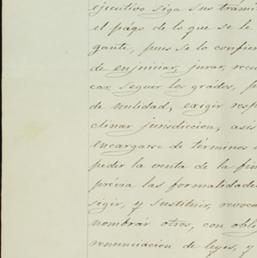 ejecutivo siga sus trámi
el págo de lo que se le
gante, pues se lo confier
de enjuiciar, jurar, recu
car, seguir los grádos, p
de nulidad, exigir resp
clinar jurisdiccion, asis
encargarse de términos
pedir la venta de la fin
prévia las formalidades
sigir, y sustituir, revoca
nombrár otros, con obli
renunciacion de leyes, y